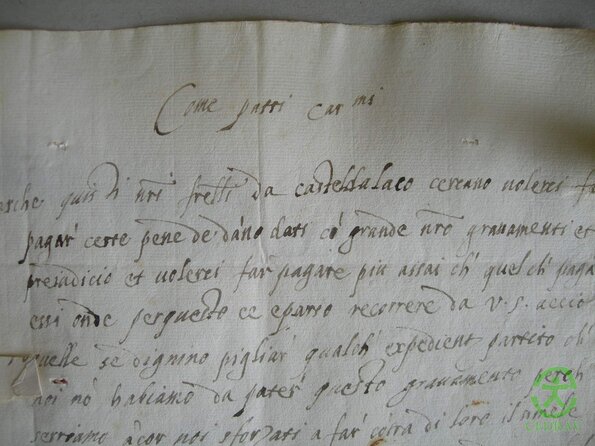 Come patri car.mi
perche quisti nri fretelli da casteldalaco cercano volerci far
pagar certe pene de dano dati co grande nro gravamenti et
prejudicio et volerci far pagare piu assai ch quel ch paga
essi onde per questo ce eparso recorrere da v. s. accio
quelle se dignino pigliar qualch expedient partito ch
noi no habiamo da pater questo gravamento perch
serriamo acor noi sforzati a far cosi a di loro il